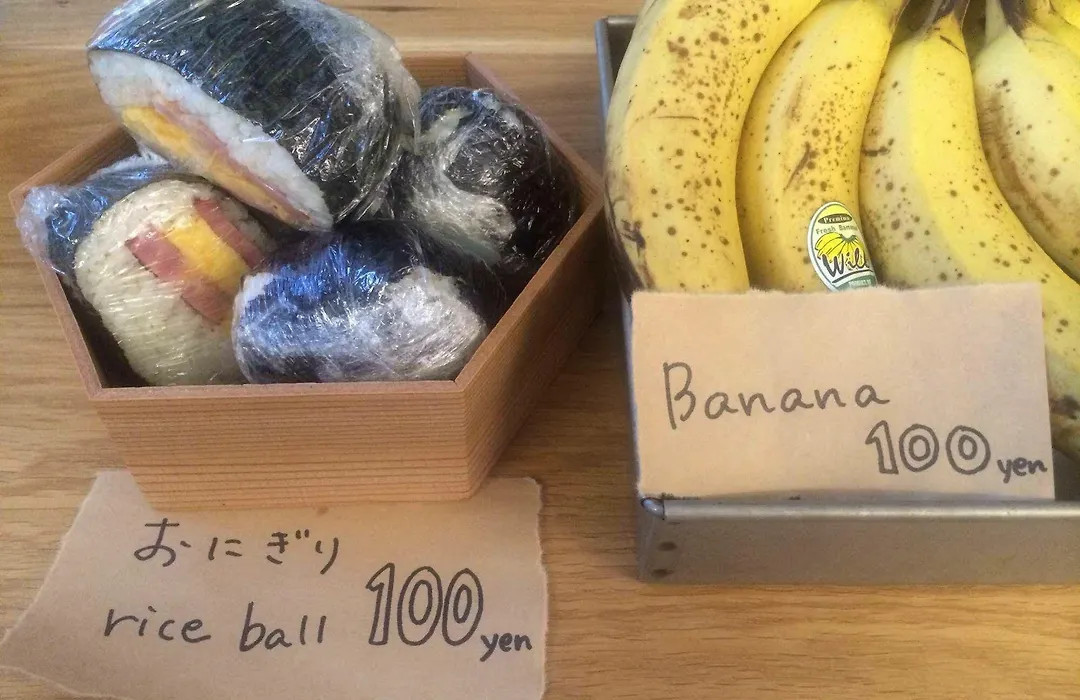 おにぎり
rice ball 100 yen
Premium
Fresh Banana
Banana
100 yen